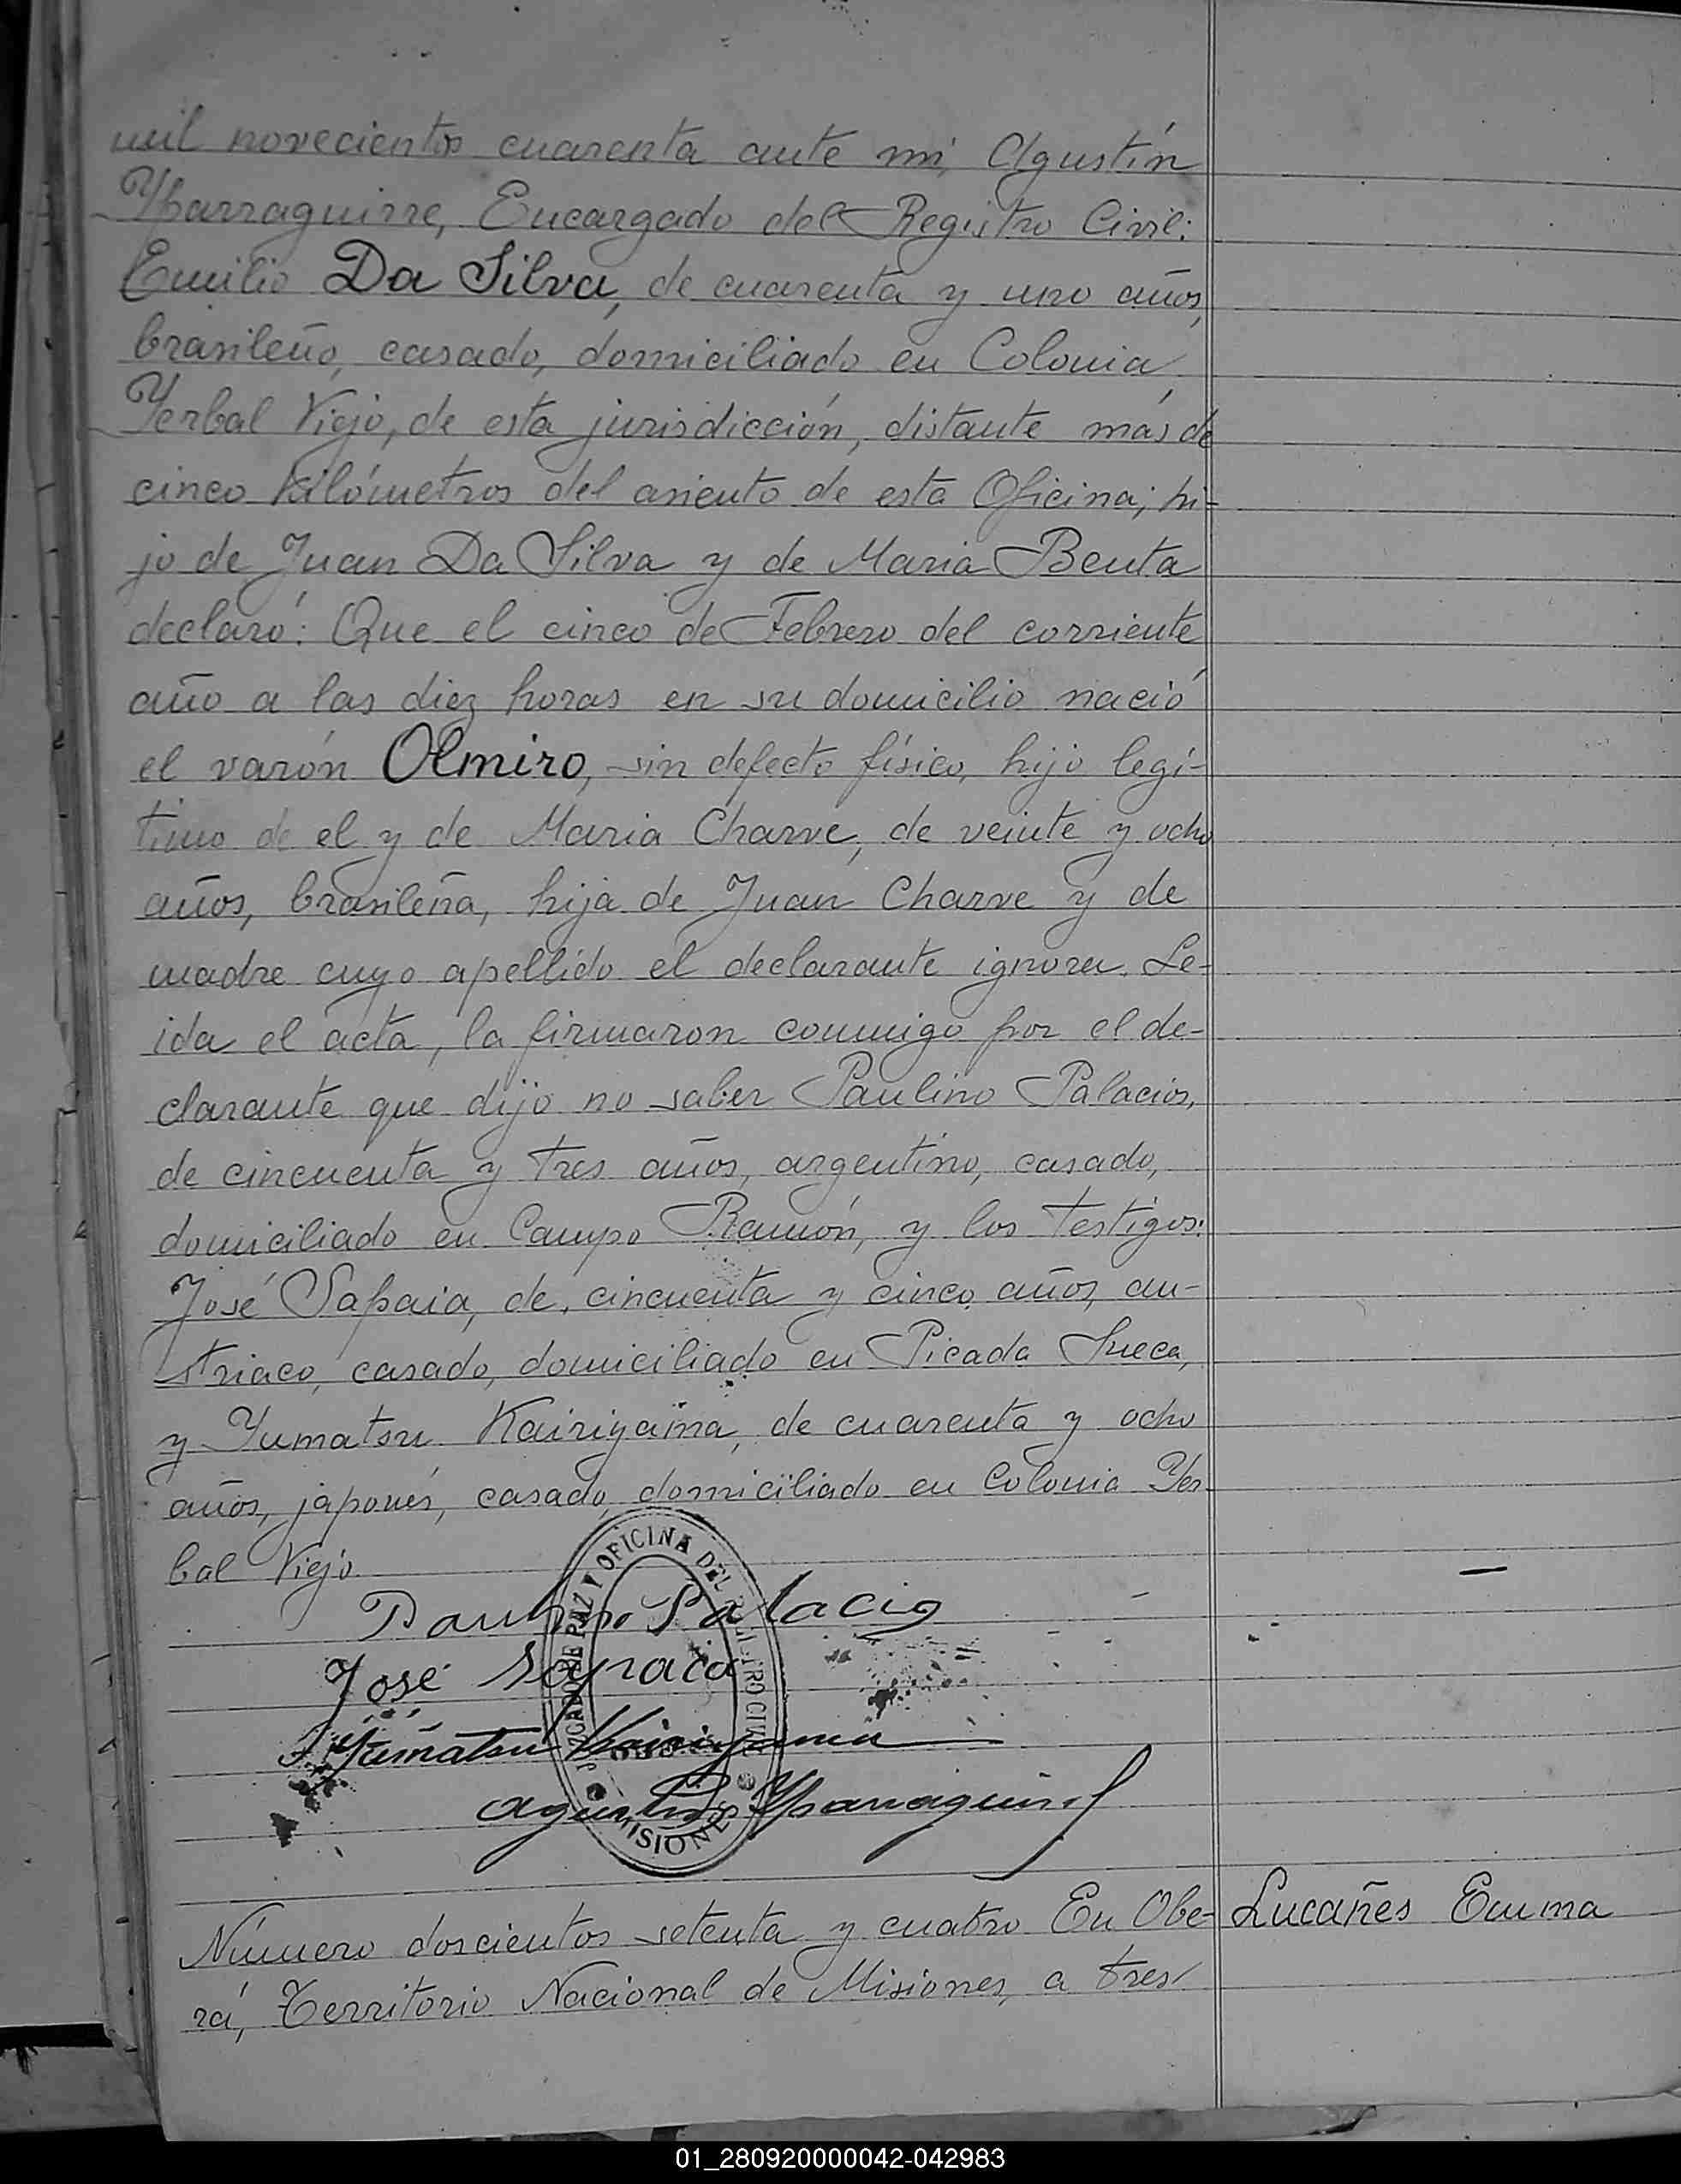 mil novecientos cuarenta ante mi, Agustín
Yparraguirre, Encargado del Registro Civil:
Emilio Da Silva, de cuarenta y uno años,
brasileño, casado, domiciliado en Colonia
Yerbal Viejo, de esta jurisdicción, distante más de
cinco kilómetros del asiento de esta Oficina; hi-
jo de Juan Da Silva y de Maria Benta
declaró: Que el cinco de Febrero del corriente
año a las diez horas en su domicilio nació
el varón Olmiro, sin defecto físico, hijo legí-
timo de el y de Maria Charve, de veinte y ocho
años, brasileña, hija de Juan Charve y de
madre cuyo apellido el declarante ignora. Le-
ida el acta, la firmaron conmigo por el de-
clarante que dijo no saber Paulino Palacios,
de cincuenta y tres años, argentino, casado,
domiciliado en Campo Ramón, y los testigos:
José Sapaia, de cincuenta y cinco años, au-
striaco, casado, domiciliado en Picada Sueca,
y Yumatsu Kairiyama, de cuarenta y ocho
años, japonés, casado, domiciliado en Colonia Yer
bal Viejo.
OFICINA DEL REGISTRO CIVIL
JUZGADO DE PAZ Y
MISIONES
Paulino Palacio
José Sapaia
Yumatsu Kairiyama
Agustín Yparraguirre
Número doscientos setenta y cuatro En Obe- Lucañes Emma
rá, Territorio Nacional de Misiones, a tres
01_280920000042-042983